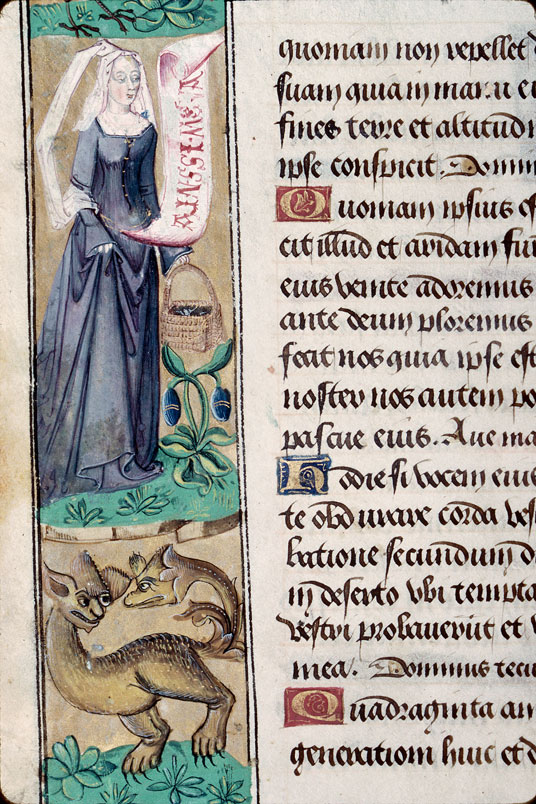 AINSSEMEVA
quoniam non repellet
suam quia in manu
fines terre et altitud
ipse conspicit. Domin
Quoniam ipsius
cit illud et aridam
eius venite adoremus
ante deum ploremus
fecit nos quia ipse est
noster nos autem po
pascue eius. Aue ma
Hodie si vocem eius
te obdurare corda ves
batione secundum
in deserto vbi tempta
vestri probaverunt et
mea. Dominus tecu
Quadraginta an
generationi huic et d